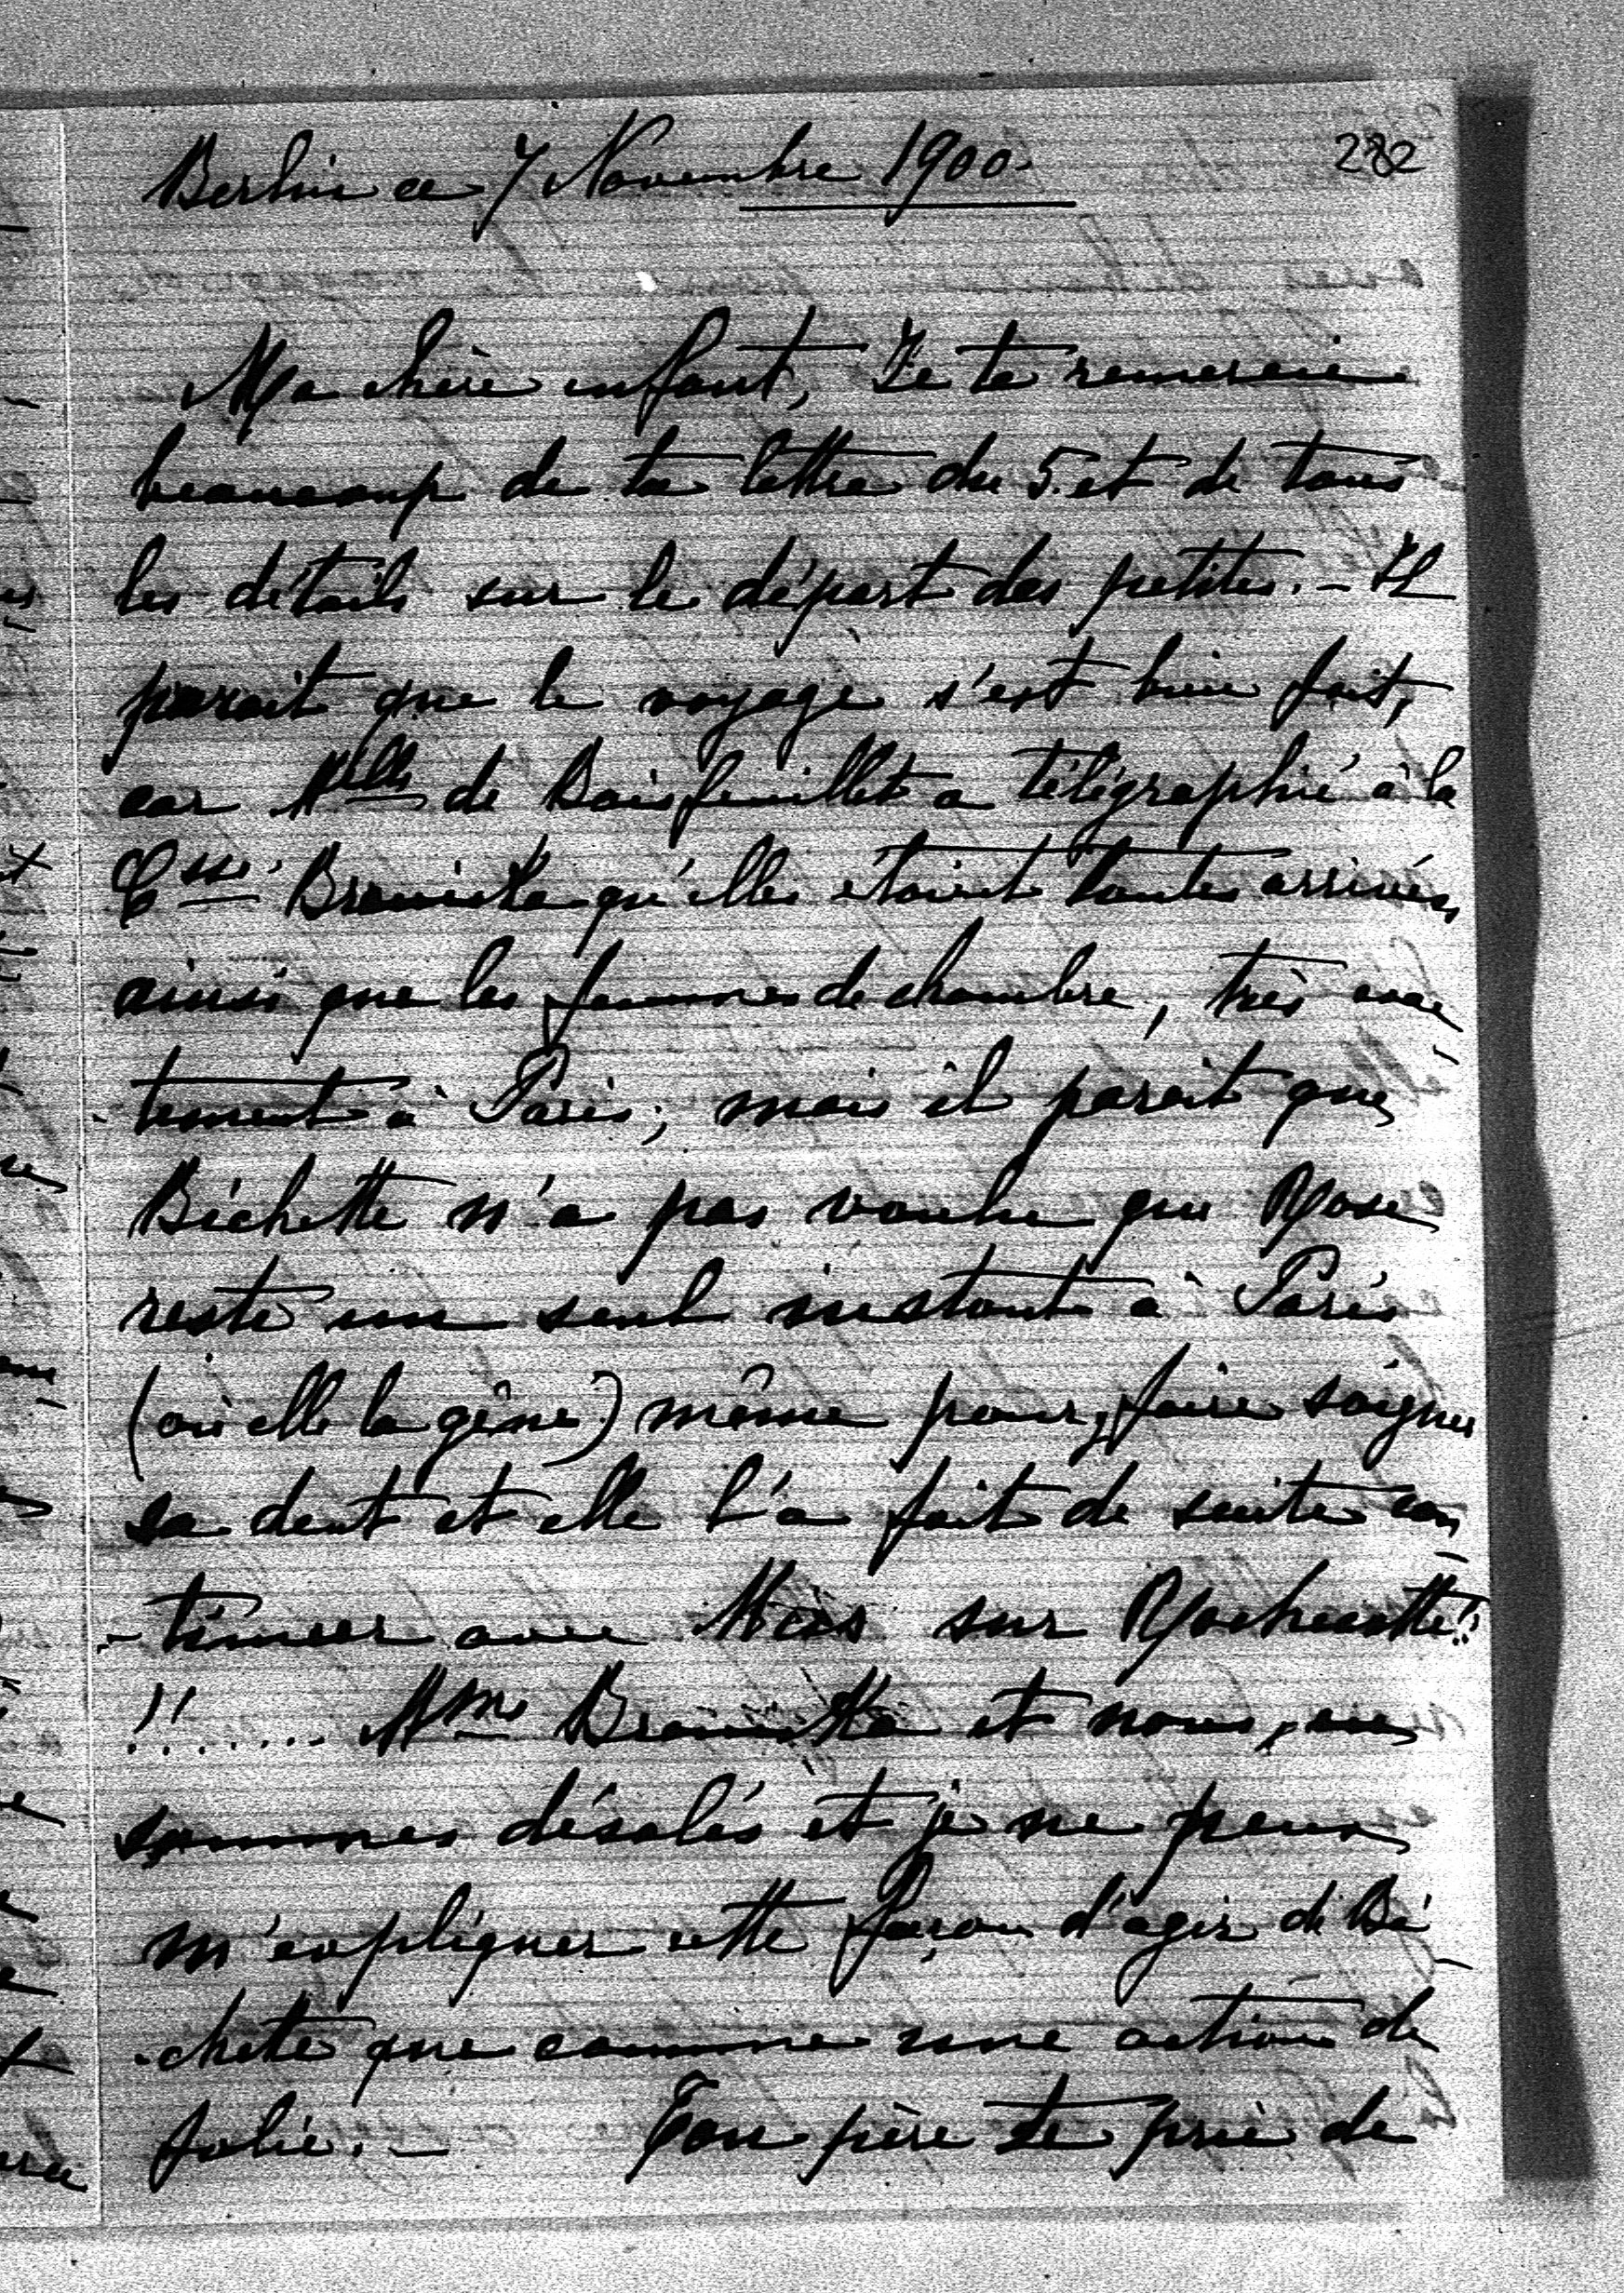 282
Berlin ce 7 Novembre 1900.
Ma chère enfant, Je te remercie
beaucoup de ta lettre du 5. et de tous
les détails sur le départ des petites. - Il
parait que le voyage s'est bien fait,
car Mlle de Boisfeuillet a télégraphié à la
Csse Bronicka qu'elles étaient toutes arrivées
ainsi que les femmes de chambre, très exac-
-tement à Paris; mais il parait que
Bichette n'a pas voulu que Rose
reste un seul instant à Paris
(où elle la gêne) même pour y faire soigner
sa dent et elle l'a fait de suite con-
-tinuer avec sur Rochecotte!!
!!....... Mme Bronicka et nous, en
sommes désolés et je ne peux
m'expliquer cette façon d'agir de Bi-
-chette que comme une action de
folie. - Ton père te prie de